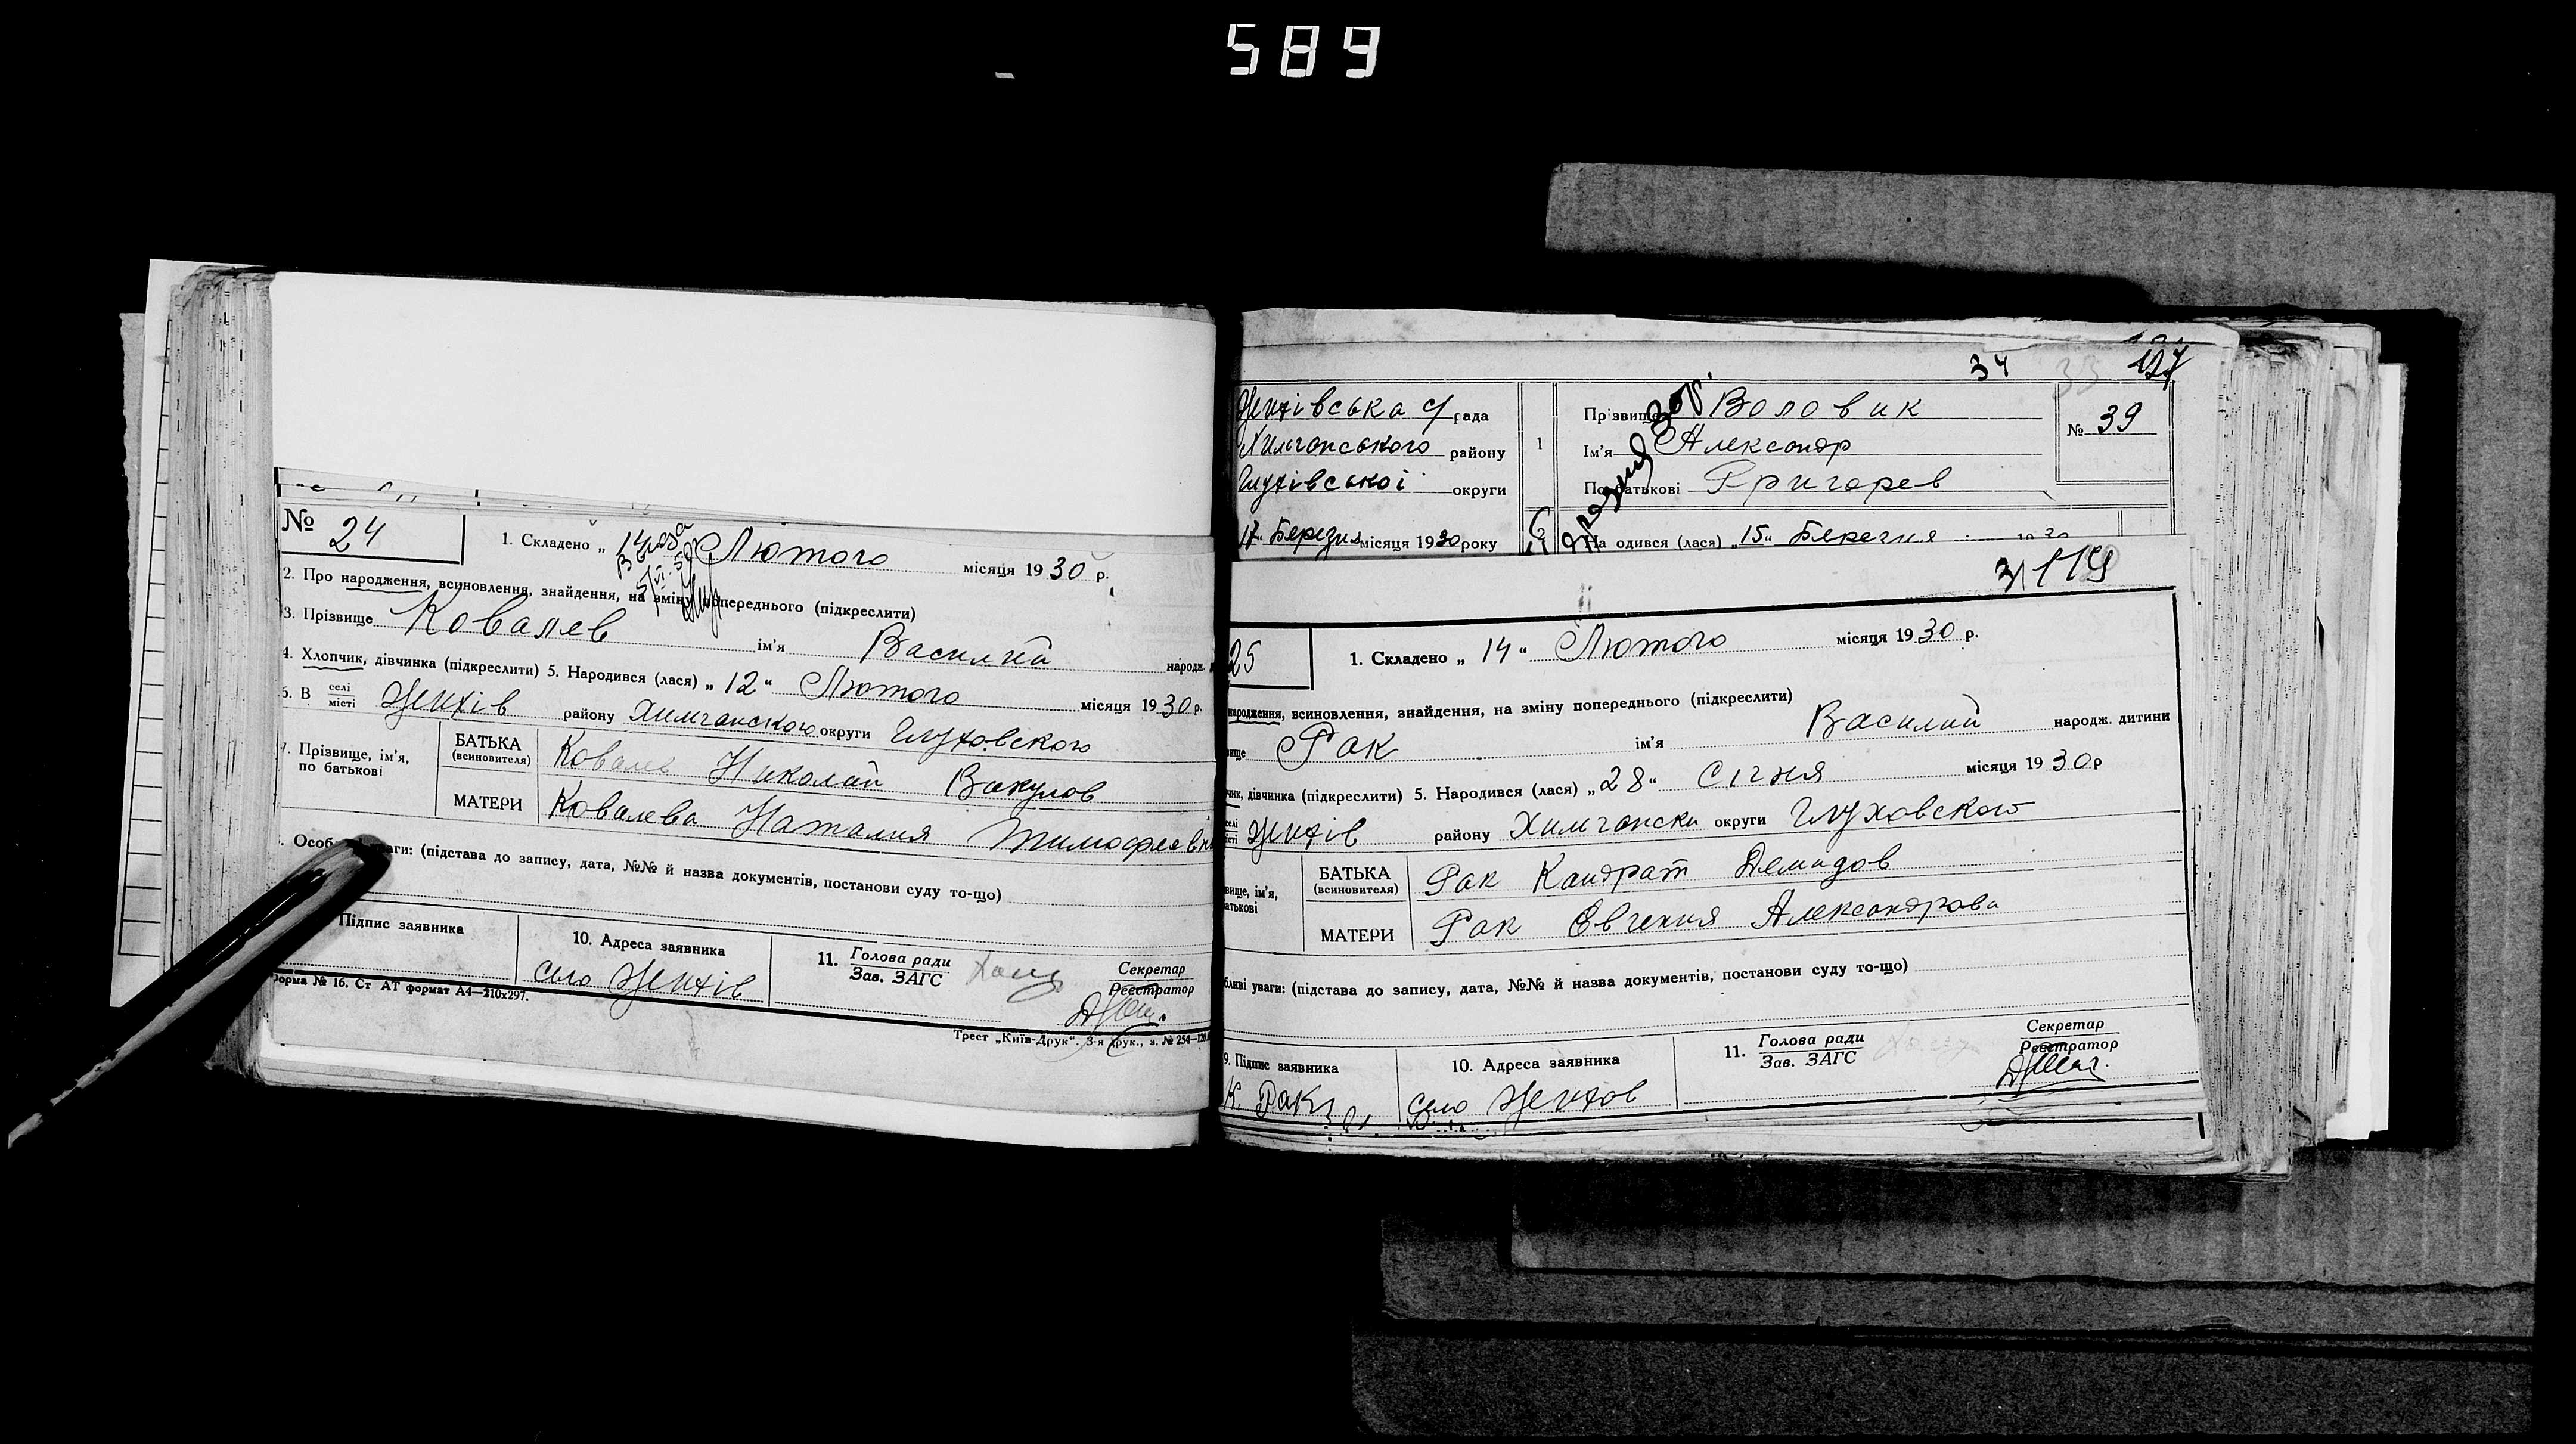 589
№ 24
1. Складено „ 14 " Лютого місяця 1930 р.
2. Про народження, всиновлення, знайдення, на зміну попереднього (підкреслити)
3. Прізвище Ковалев ім'я Василий народж.
4. Хлопчик, дівчинка (підкреслити) 5. Народився (лася) „ 12 " Лютого місяця 1930 р.
6. В селі місті района Химчанского округи Глуховского
7. Прізвище, ім'я, по батькові
БАТЬКА (всиновителя) Ковалев Николай Вакулов
МАТЕРИ Ковалева Наталия Тимофеевн
Особ уваги: (підстава до запису, дата, №№ й назва документів, постанови суду то-що)
Підпис заявника
10. Адреса заявника
село
11. Голова ради
Зав. ЗАГС
Секретар
Реєстратор
форма № 16. Ст АТ формат А4—210х297.
Трест „Київ-Друк". 3-я друк., з. № 254—120
34 33 127
рада
району
Глухівської округи
17 " Березня місяця 1930 року
1
Прізвище Воловик
Ім'я Александр
По батькові Григорев
№ 39
На одився (лася) „15" Березня
31 119
25
1. Складено „ 14 " Лютого місяця 1930 р.
народження, всиновлення, знайдення, на зміну попереднього (підкреслити)
ище Рак ім'я Василий народж. дитини
чик, дівчинка (підкреслити) 5. Народився (лася) „28" Січня місяця 1930 р
селі місті району Химчански округи Глуховского
вище, ім'я, батькові
БАТЬКА (всиновителя) Рак Кандрат Демидов
МАТЕРИ Рак Евгения Александрова
бливі уваги: (підстава до запису, дата, №№ й назва документів, постанови суду то-що)
9. Підпис заявника
К. Рак
10. Адреса заявника
село
11. Голова ради
Зав. ЗАГС
Секретар
Реєстратор